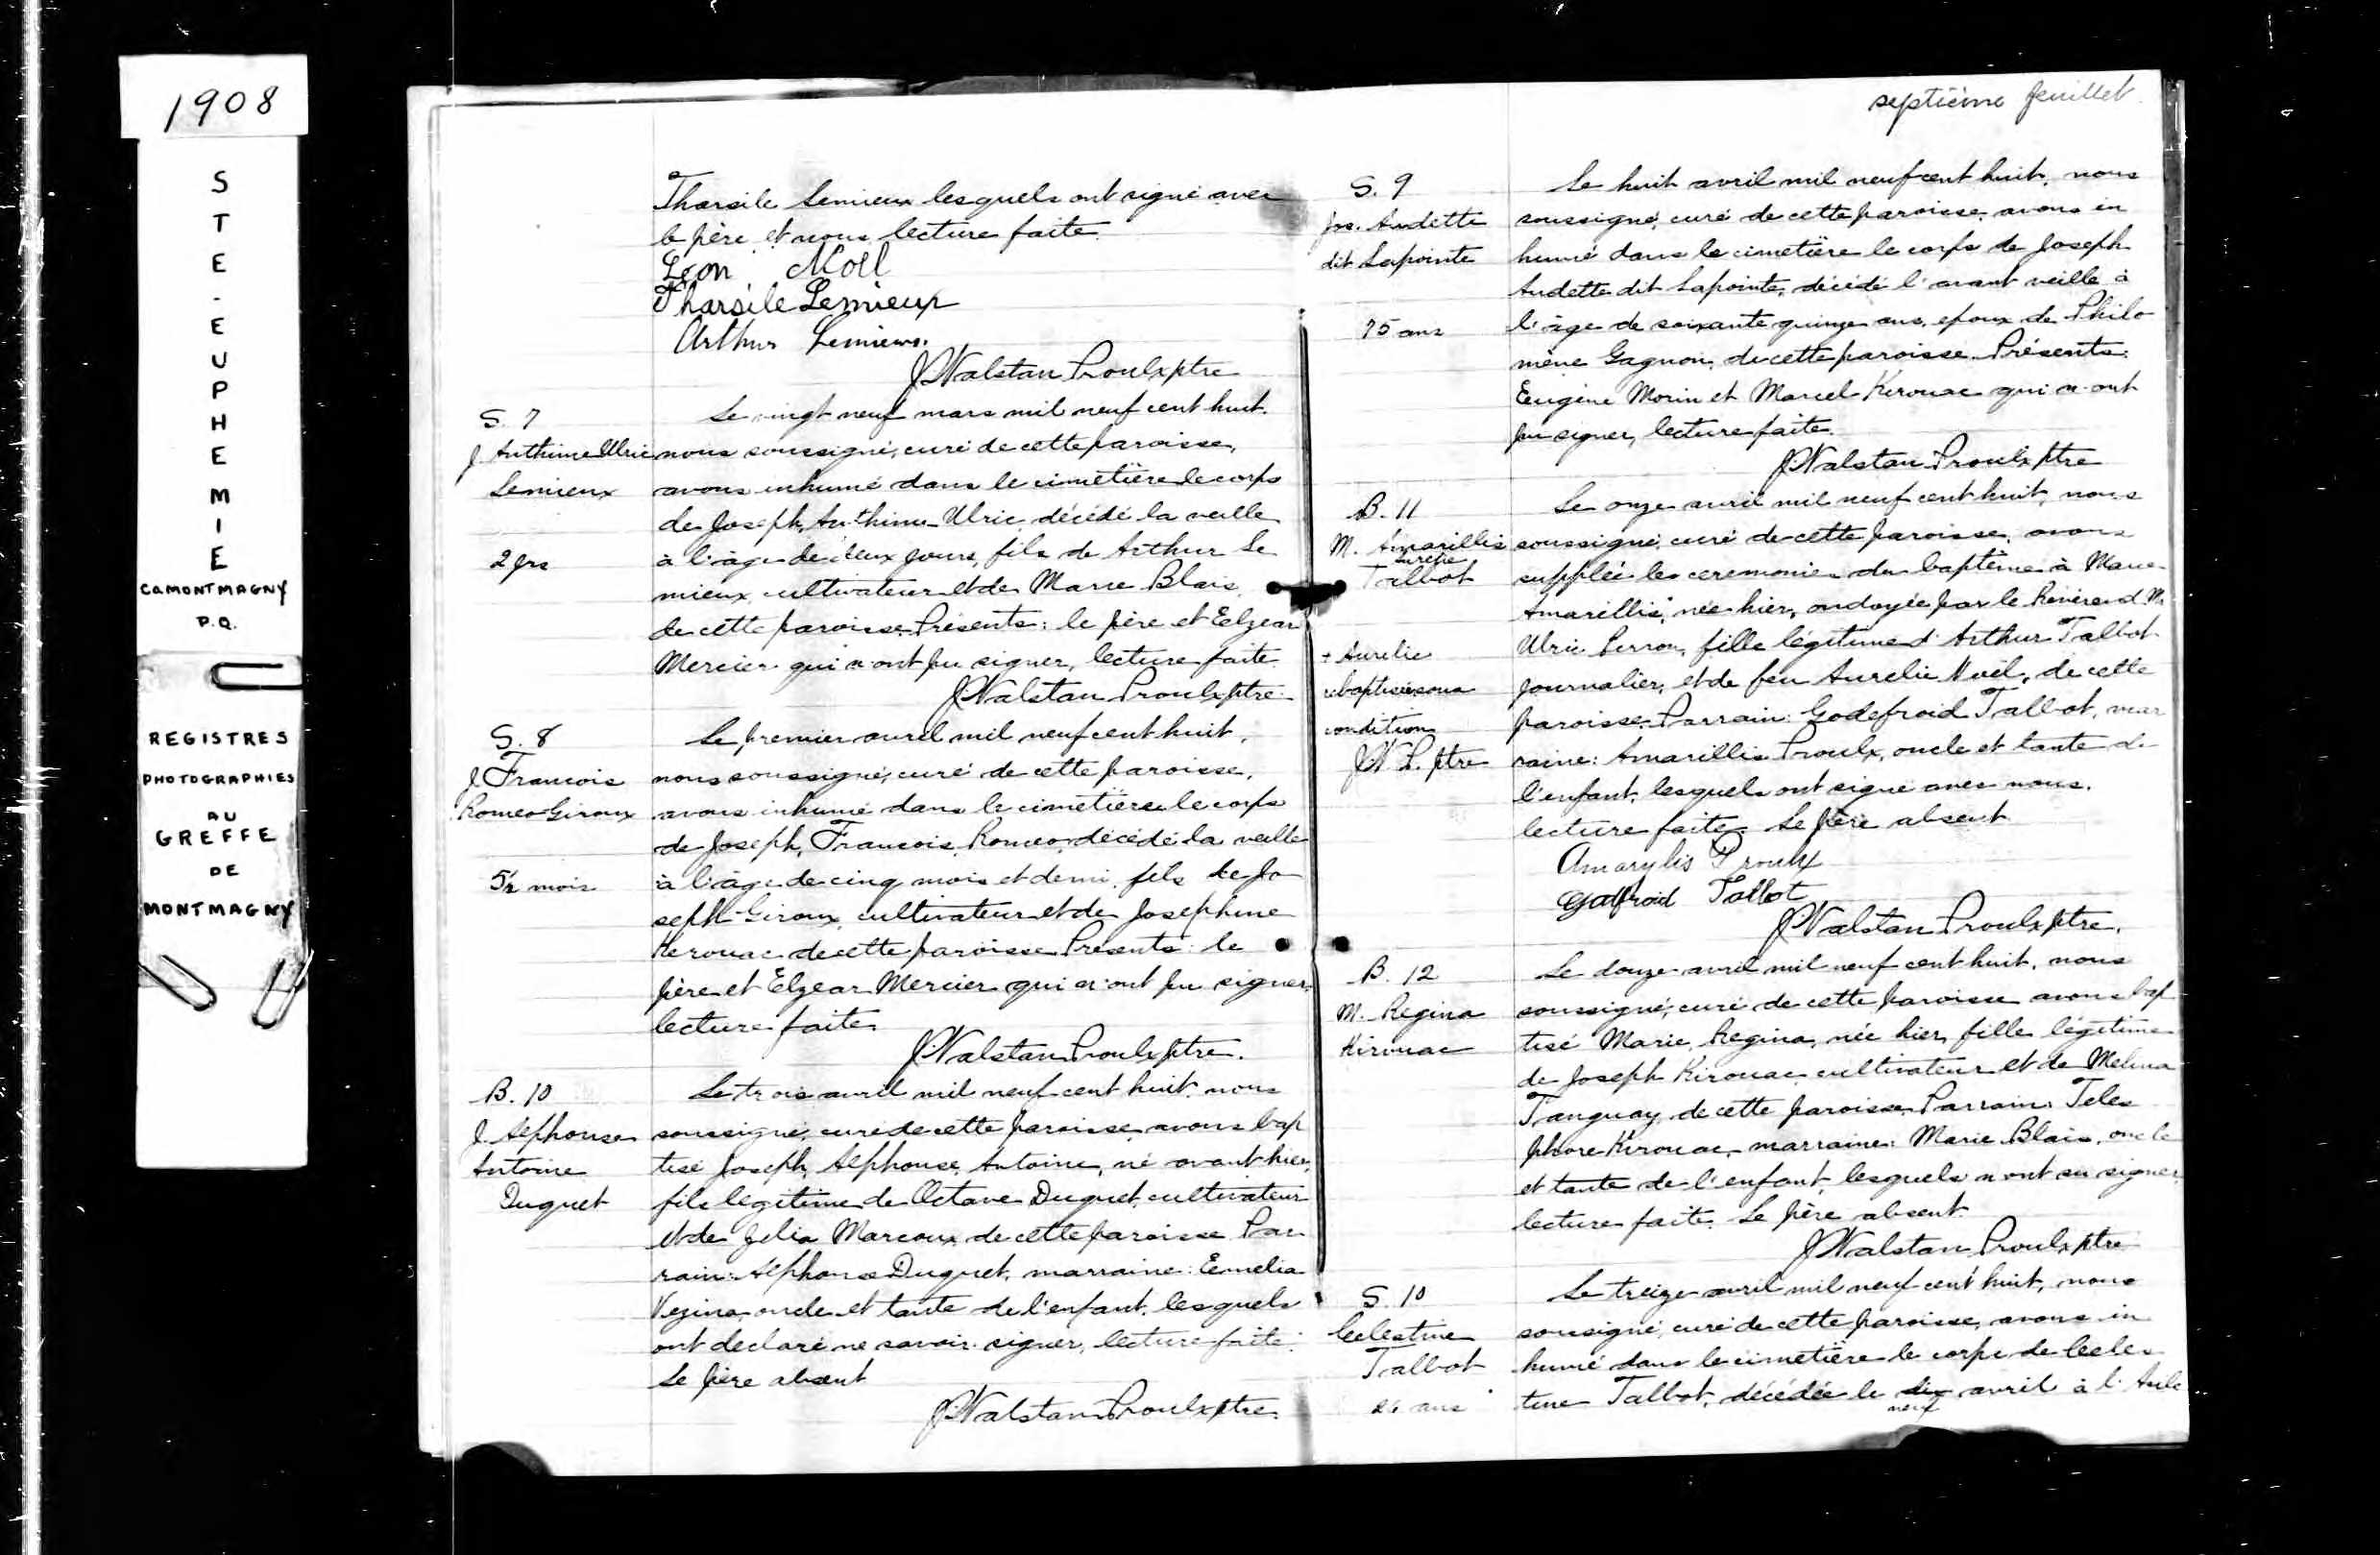 1908
STE-EUPHEMIE
CO. MONTMAGNY
P.Q.
REGISTRES
PHOTOGRAPHIES
AU
GREFFE
DE
MONTMAGNY
Tharsile Lemieux lesquels ont signé avec
le père et nous, lecture faite.
Léon Noël
Tharsile Lemieux
Arthur Lemieux.
J. Walstan Proulx ptre
S. 7
J. Anthime Ulric
Lemieux
2 jrs
Le vingt neuf mars mil neuf cent huit.
nous soussigné, curé de cette paroisse,
avons inhumé dans le cimetière le corps
de Joseph, Anthime Ulric, décédé la veille
à l'âge de deux jours, fils de Arthur Le
mieux, cultivateur et de Marie Blais,
de cette paroisse. Présents: le père et Eelzear
Mercier qui n'ont pu signer, lecture faite.
J. Walstan Proulx ptre.
S. 8
J. Francois
Romeo Giroux
5½ mois
Le premier avril mil neuf cent huit,
nous soussigné, curé de cette paroisse,
avons inhumé dans le cimetière le corps
de Joseph, Francois, Romeo, décédé la veille
à l'âge de cinq mois et demi, fils de Jo
seph Giroux, cultivateur et de Josephine
Kerouac de cette paroisse. Présents: le
père et Elzear Mercier qui n'ont pu signer,
lecture faite.
J. Walstan Proulx ptre.
B. 10
J. Alphonse
Antoine
Duquet
Le trois avril mil neuf cent huit, nous
soussigné, curé de cette paroisse, avons bap
tisé Joseph, Alphonse, Antoine, né avant hier,
fils légitime de Octave Duquet, cultivateur
et de Marcoux de cette paroisse. Par
rain: Alphonse Duquet, marraine: Eemelia
Vezina, oncle et tante de l'enfant, lesquels
ont déclaré ne savoir signer, lecture faite.
Le père absent
J. Walstan Proulx ptre.
septième feuillet.
S. 9
Jos. Audette
dit Lapointe
75 ans
Le huit avril mil neuf cent huit, nous
soussigné, curé de cette paroisse, avons in
humé dans le cimetière le corps de Joseph
Audette dit Lapointe, décédé l'avant veille à
l'âge de soixante quinze ans, époux de Philo
mène Gagnon, de cette paroisse. Présents:
Eugène Morin et Marcel Kerouac qui n'ont
pu signer, lecture faite.
J. Walstan Proulx ptre
B. 11
M. Amarillis
Aurelie
Talbot
+ Aurelie
rebaptisée sous
condition
J. W. P. ptre
Le onze avril mil neuf cent huit, nous
soussigné, curé de cette paroisse, avons
suppléé les ceremonies du baptême à Marie
Amarillis,+ née hier, ondoyée par le Révérend Mr
Ulric Perron, fille légitime d'Arthur Talbot
journalier, et de feu Aurelie Noël, de cette
paroisse. Parrain: Godefroid Talbot, mar
raine: Amarillis Proulx, oncle et tante de
l'enfant, lesquels ont signé avec nous,
lecture faite. Le père absent
Amarylis Proulx
Talbot
J. Walstan Proulx ptre.
B. 12
M. Regina
Kirouac
Le douze avril mil neuf cent huit, nous
soussigné, curé de cette paroisse avons bap
tisé Marie, Regina, née hier, fille légitime
de Joseph Kirouac, cultivateur et de Melina
Tanguay, de cette paroisse. Parrain: Teles
phore Kirouac, marraine: Marie Blais, oncle
et tante de l'enfant, lesquels n'ont su signer,
lecture faite. Le père absent.
J. Walstan Proulx ptre
S. 10
Celestine
Talbot
Le treize avril mil neuf cent huit, nous
soussigné, curé de cette paroisse, avons in
humé dans le cimetière le corps de Celes
tine Talbot, décédée le dix neuf avril à l'Aile